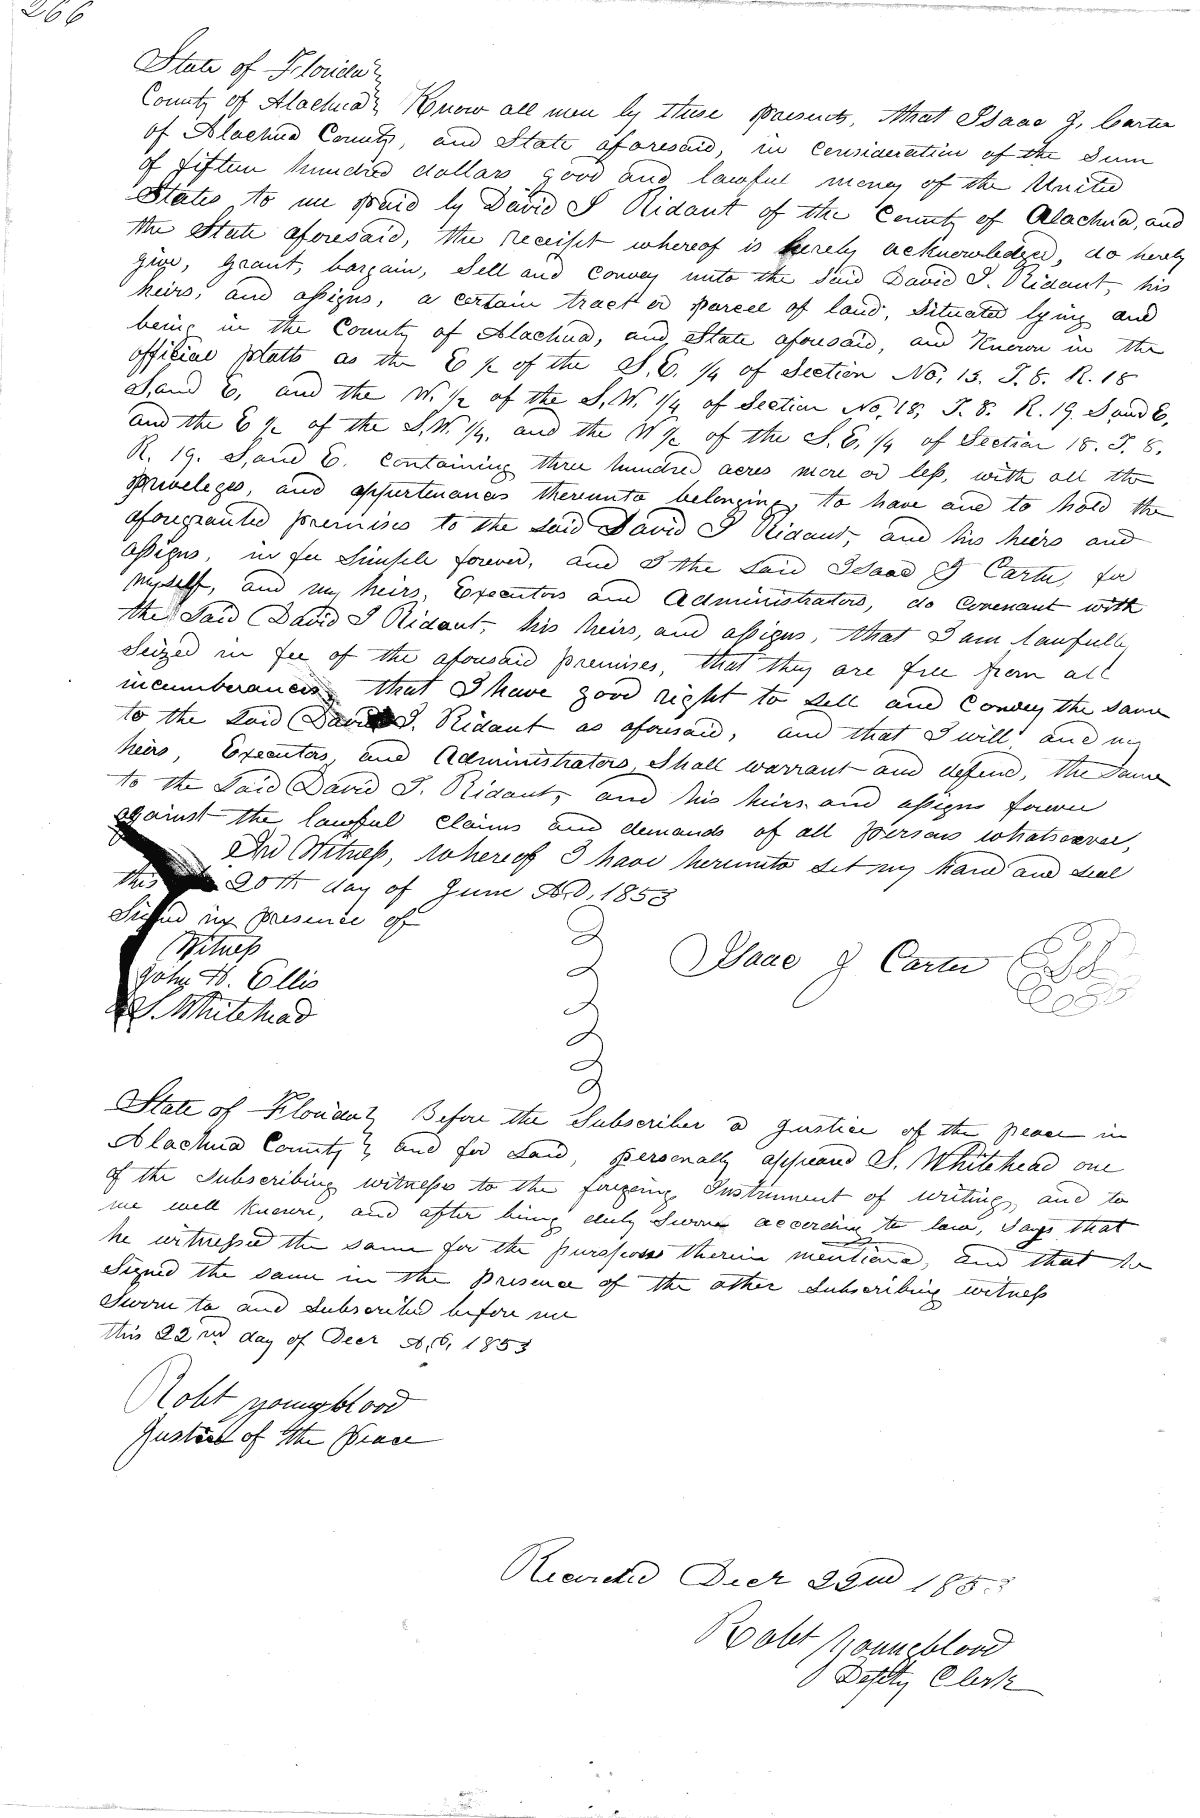 266
State of Florida }
County of Alachua } Know all men by these presents, that Isaac J. Carter
of Alachua County, and State aforesaid, in consideration of the Sum
of fifteen hundred dollars good and lawful money of the United
States to me paid by David I Ridaut of the County of Alachua, and
the State aforesaid, the receipt whereof is herely acknowledged, do hereby
give, grant, bargain, Sell and Convey unto the Said David I. Ridaut, his
heirs, and assigns, a certain tract or parcel of land, Situated lying and
being in the County of Alachua, and State aforesaid, and Known in the
official platts as the E ½ of the S.E. ¼ of Section No. 13. T. 8. R. 18
S, and E, and the W. ½ of the S.W. ¼ of Section No, 18, T. 8. R. 19. S, and E,
and the E ½ of the S.W. ¼, and the W ½ of the S. E. ¼ of Section 18. T. 8.
R. 19. S, and E. containing three hundred acres more or less, with all the
priveleges, and appurtenances thereunto belonging, to have and to hold the
aforegranted premises to the Said David I Ridaut, and his heirs and
assigns, in fee Simple forever, and I the Said Isaac J Carter, for
myself, and my heirs, Executors and Administrators, do covenant with
the Said David I Ridaut, his heirs, and assigns, that I am lawfully
Seized in fee of the aforesaid premises, that they are free from all
incumberances, that I have good right to Sell and Convey the same
to the Said David I. Ridaut as aforesaid, and that I will, and my
heirs, Executors, and Administrators, Shall warrant and defend, the Same
to the Said David I. Ridaut, and his heirs and assigns forever
against the lawful claims and demands of all persons whatsoever,
In Witness, whereof I have hereunto set my hand and seal
this 20th day of June A.D. 1853
Signed in presence of
Witness
John H. Ellis
S. Whitehead
Isaac J Carter
State of Florida } Before the Subscriber a Justice of the peace in
Alachua County } and for Said, personally appeard S. Whitehead one
of the Subscribing witness to the foregoing Instrument of writing, and to
me well known, and after being duly Sworn according to law, Says that
he witnessed the same for the purposes therein mentiond, and that he
Signed the same in the presence of the other Subscribing witness
Sworn to and Subscribed before me
this 22nd day of Decr A.D. 1853
Robt Youngblood
Justice of the Peace
Recorded Decr 22nd 1853
Robt Youngblood
Depty Clerk